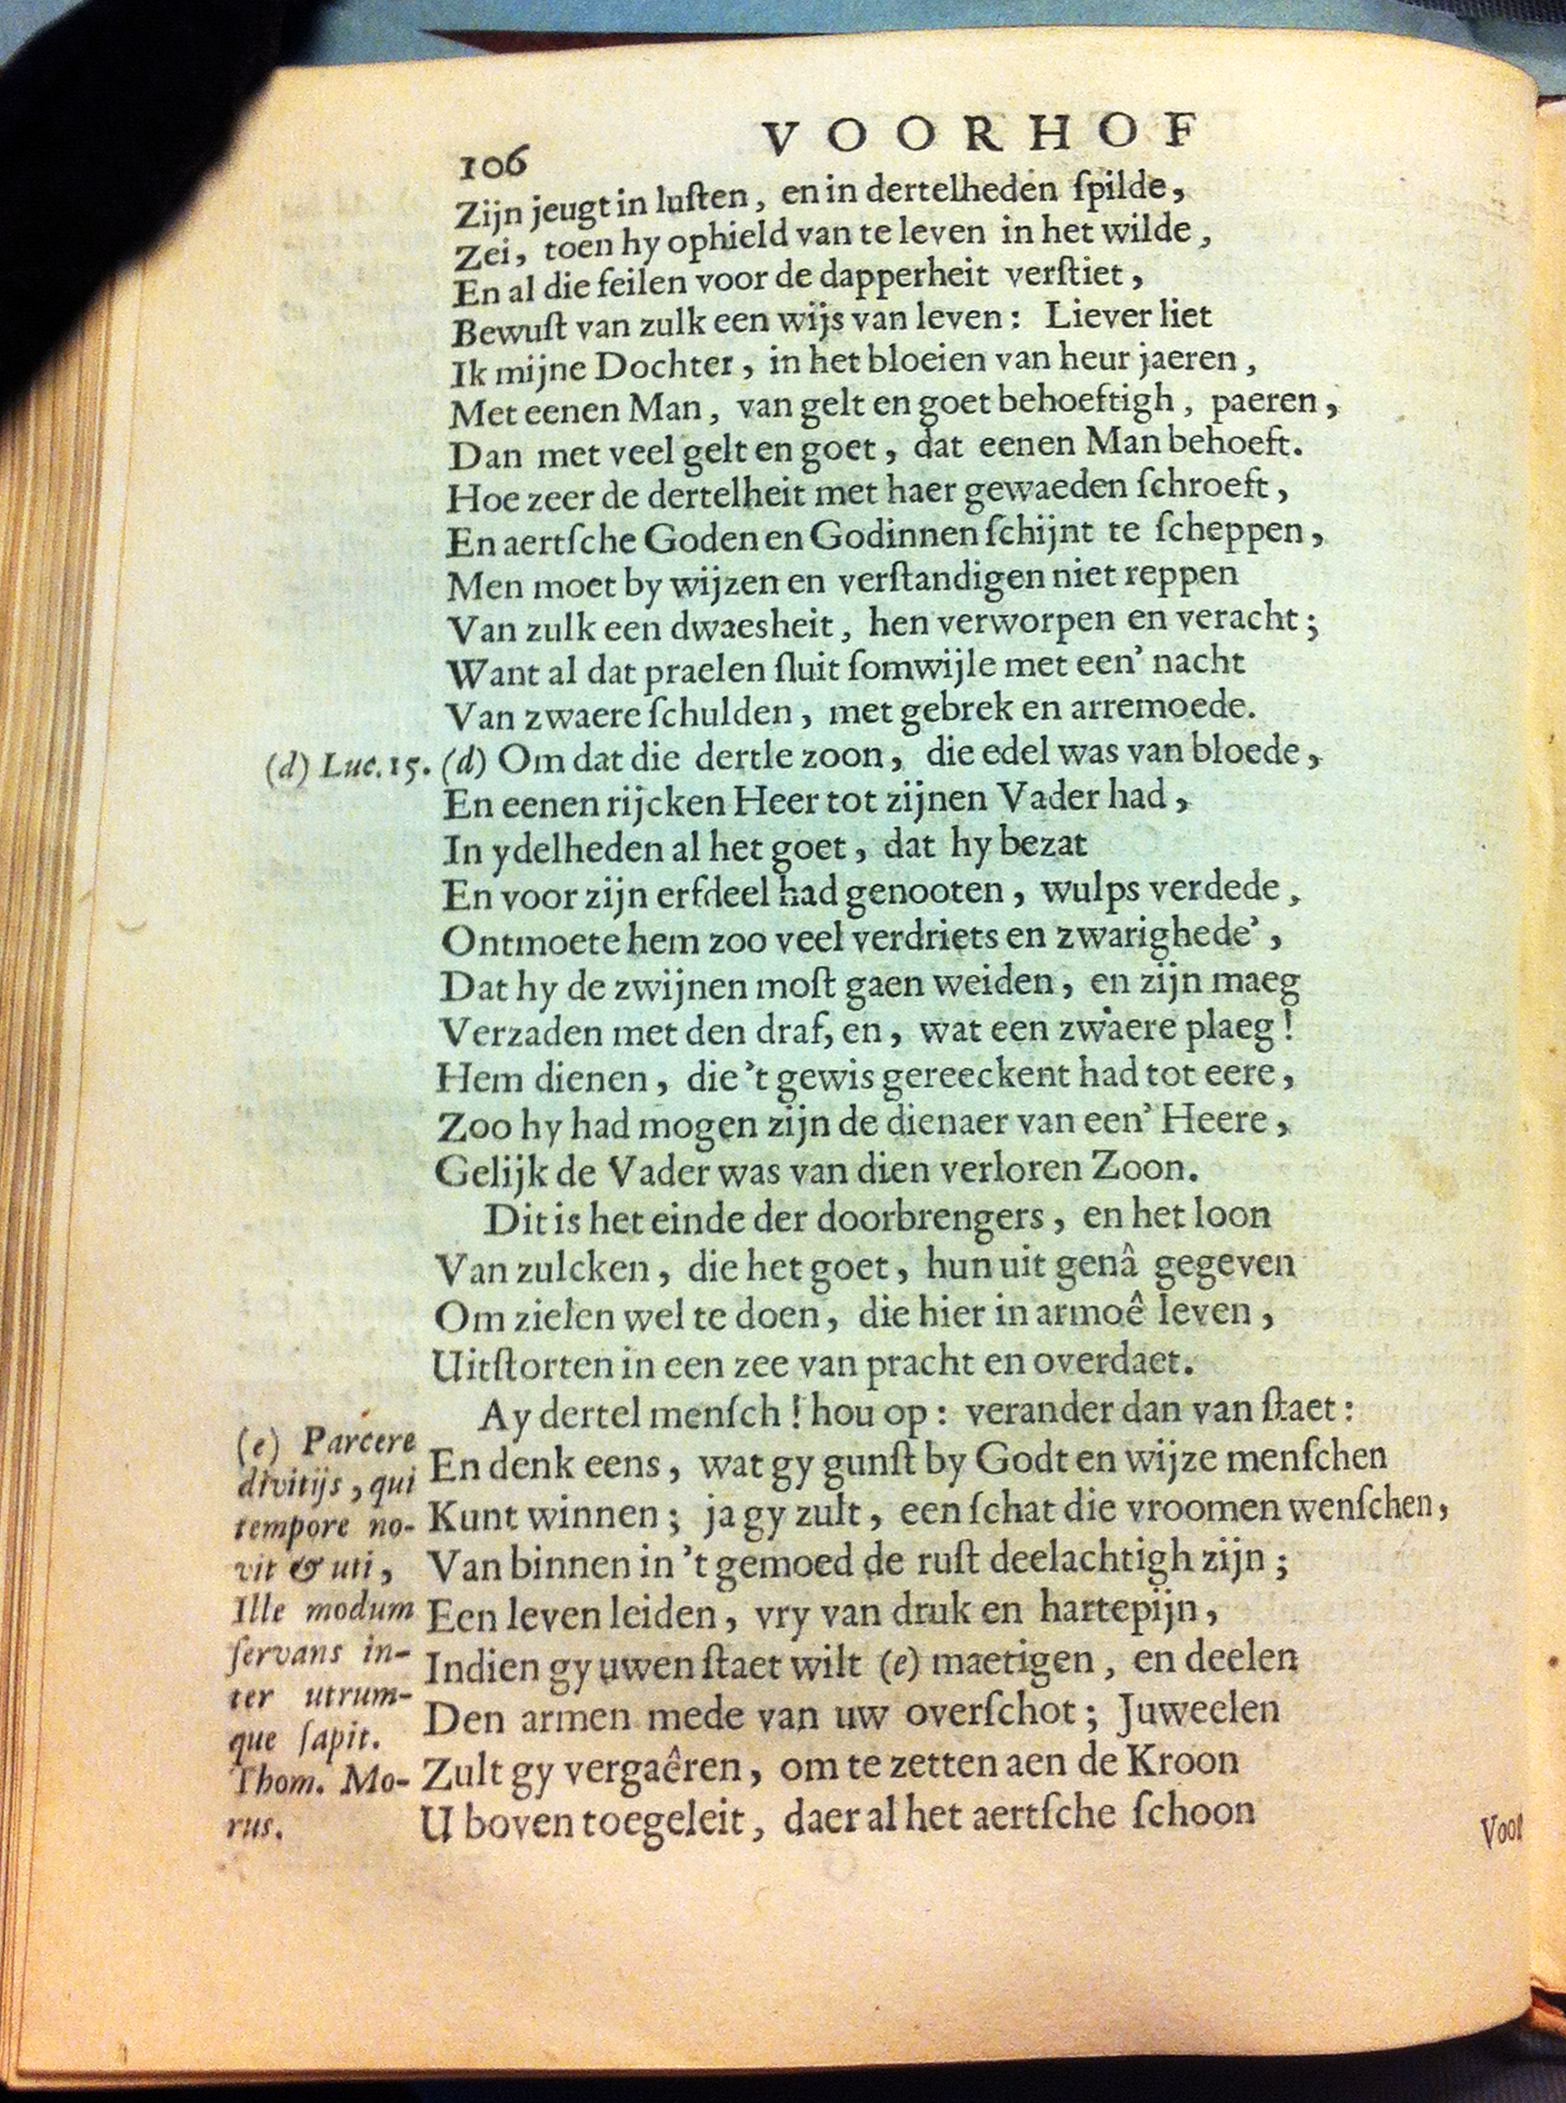 106
VOORHOF
Zijn jeugt in luſten, en in dertelheden ſpilde,
Zei, toen hy ophield van te leven in het wilde,
En al die feilen voor de dapperheit verſtiet,
Bewuſt van zulk een wijs van leven: Liever liet
Ik mijne Dochter, in het bloeien van heur jaeren,
Met eenen Man, van gelt en goet behoeftigh, paeren,
Dan met veel gelt en goet, dat eenen Man behoeft.
Hoe zeer de dertelheit met haer gewaeden ſchroeft,
En aertſche Goden en Godinnen ſchijnt te ſcheppen,
Men moet by wijzen en verſtandigen niet reppen
Van zulk een dwaesheit, hen verworpen en veracht;
Want al dat praelen ſluit ſomwijle met een' nacht
Van zwaere ſchulden, met gebrek en arremoede.
(d) Luc. 15. (d) Om dat die dertle zoon, die edel was van bloede,
En eenen rijcken Heer tot zijnen Vader had,
In ydelheden al het goet, dat hy bezat
En voor zijn erfdeel had genooten, wulps verdede,
Ontmoete hem zoo veel verdriets en zwarighede',
Dat hy de zwijnen moſt gaen weiden, en zijn maeg
Verzaden met den draf, en, wat een zwaere plaeg!
Hem dienen, die 't gewis gereeckent had tot eere,
Zoo hy had mogen zijn de dienaer van een' Heere,
Gelijk de Vader was van dien verloren Zoon.
Dit is het einde der doorbrengers, en het loon
Van zulcken, die het goet, hun uit genâ gegeven
Om zielen wel te doen, die hier in armoê leven,
Uitſtorten in een zee van pracht en overdaet.
Ay dertel menſch! hou op: verander dan van ſtaet:
En denk eens, wat gy gunſt by Godt en wijze menſchen
Kunt winnen; ja gy zult, een ſchat die vroomen wenſchen,
Van binnen in 't gemoed de ruſt deelachtigh zijn;
Een leven leiden, vry van druk en hartepijn,
Indien gy uwen ſtaet wilt (e) maetigen, en deelen
Den armen mede van uw overſchot; Juweelen
Zult gy vergaêren, om te zetten aen de Kroon
U boven toegeleit, daer al het aertſche ſchoon
(e) Parcere
divitijs, qui
tempore no-
vit & uti,
Ille modum
ſervans in-
ter utrum-
que ſapit.
Thom. Mo-
rus.
Voor